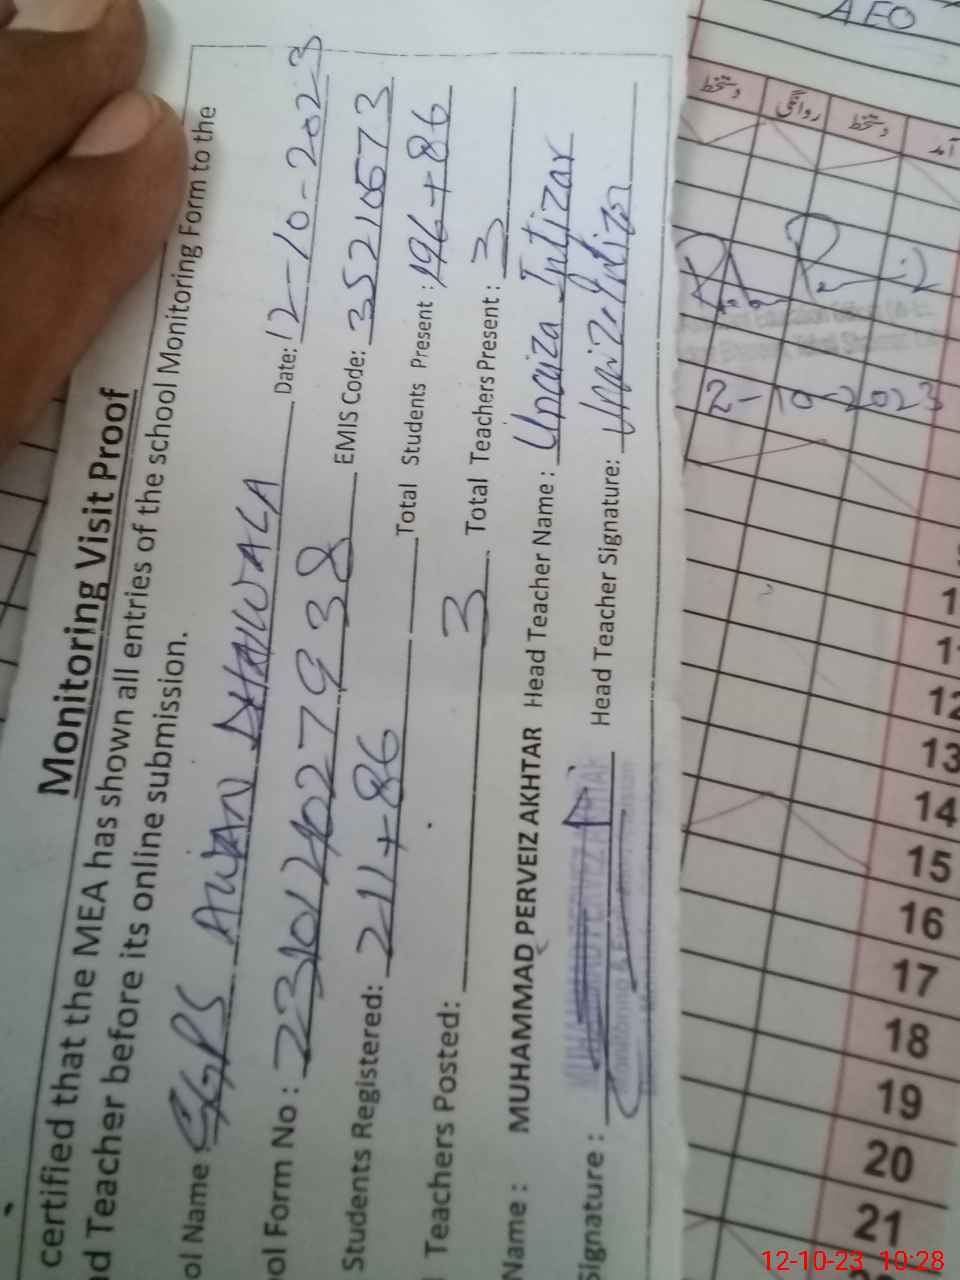 Monitoring Visit Proof
certified that the MEA has shown all entries of the school Monitoring Form to the
d Teacher before its online submission.
ol Name : GGPS AWAN DHAIWALA Date: 12-10-2023
ol Form No : 23101240279 38 EMIS Code: 35210573
Students Registered: 211+86 Total Students Present : 196+86
Teachers Posted: 3 Total Teachers Present : 3
Name : MUHAMMAD PERVEIZ AKHTAR Head Teacher Name : Unaiza Intizar
Signature : Head Teacher Signature: Unaiza Intizar
MUHAMMAD PERVEIZ AKHTAR
AEO
آمد دستخط روانگی دستخط
2-10-2023
12
13
14
15
16
17
18
19
20
21
12-10-23 10:28